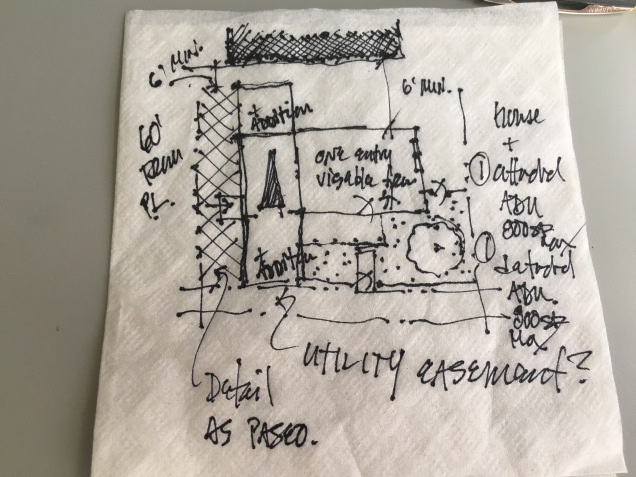 6' MIN.
6' MIN.
60'
FROM
PL.
Addition
ONE entry
visable from
House
+
① attached
ADU
800SF
Max
① detatched
ADU.
800SF
Max
Addition
UTILITY EASEMENT?
Detail
AS PASEO.